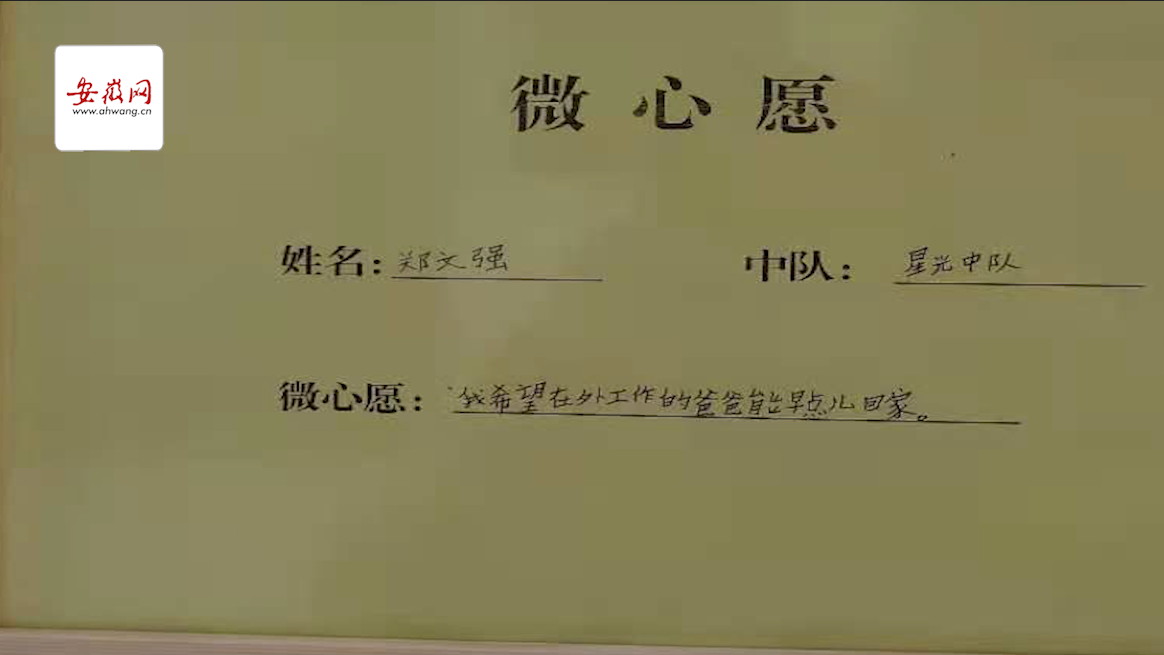 安徽网
www.ahwang.cn
微心愿
姓名：郑文强 中队：星光中队
微心愿：我希望在外工作的爸爸能早点儿回家。